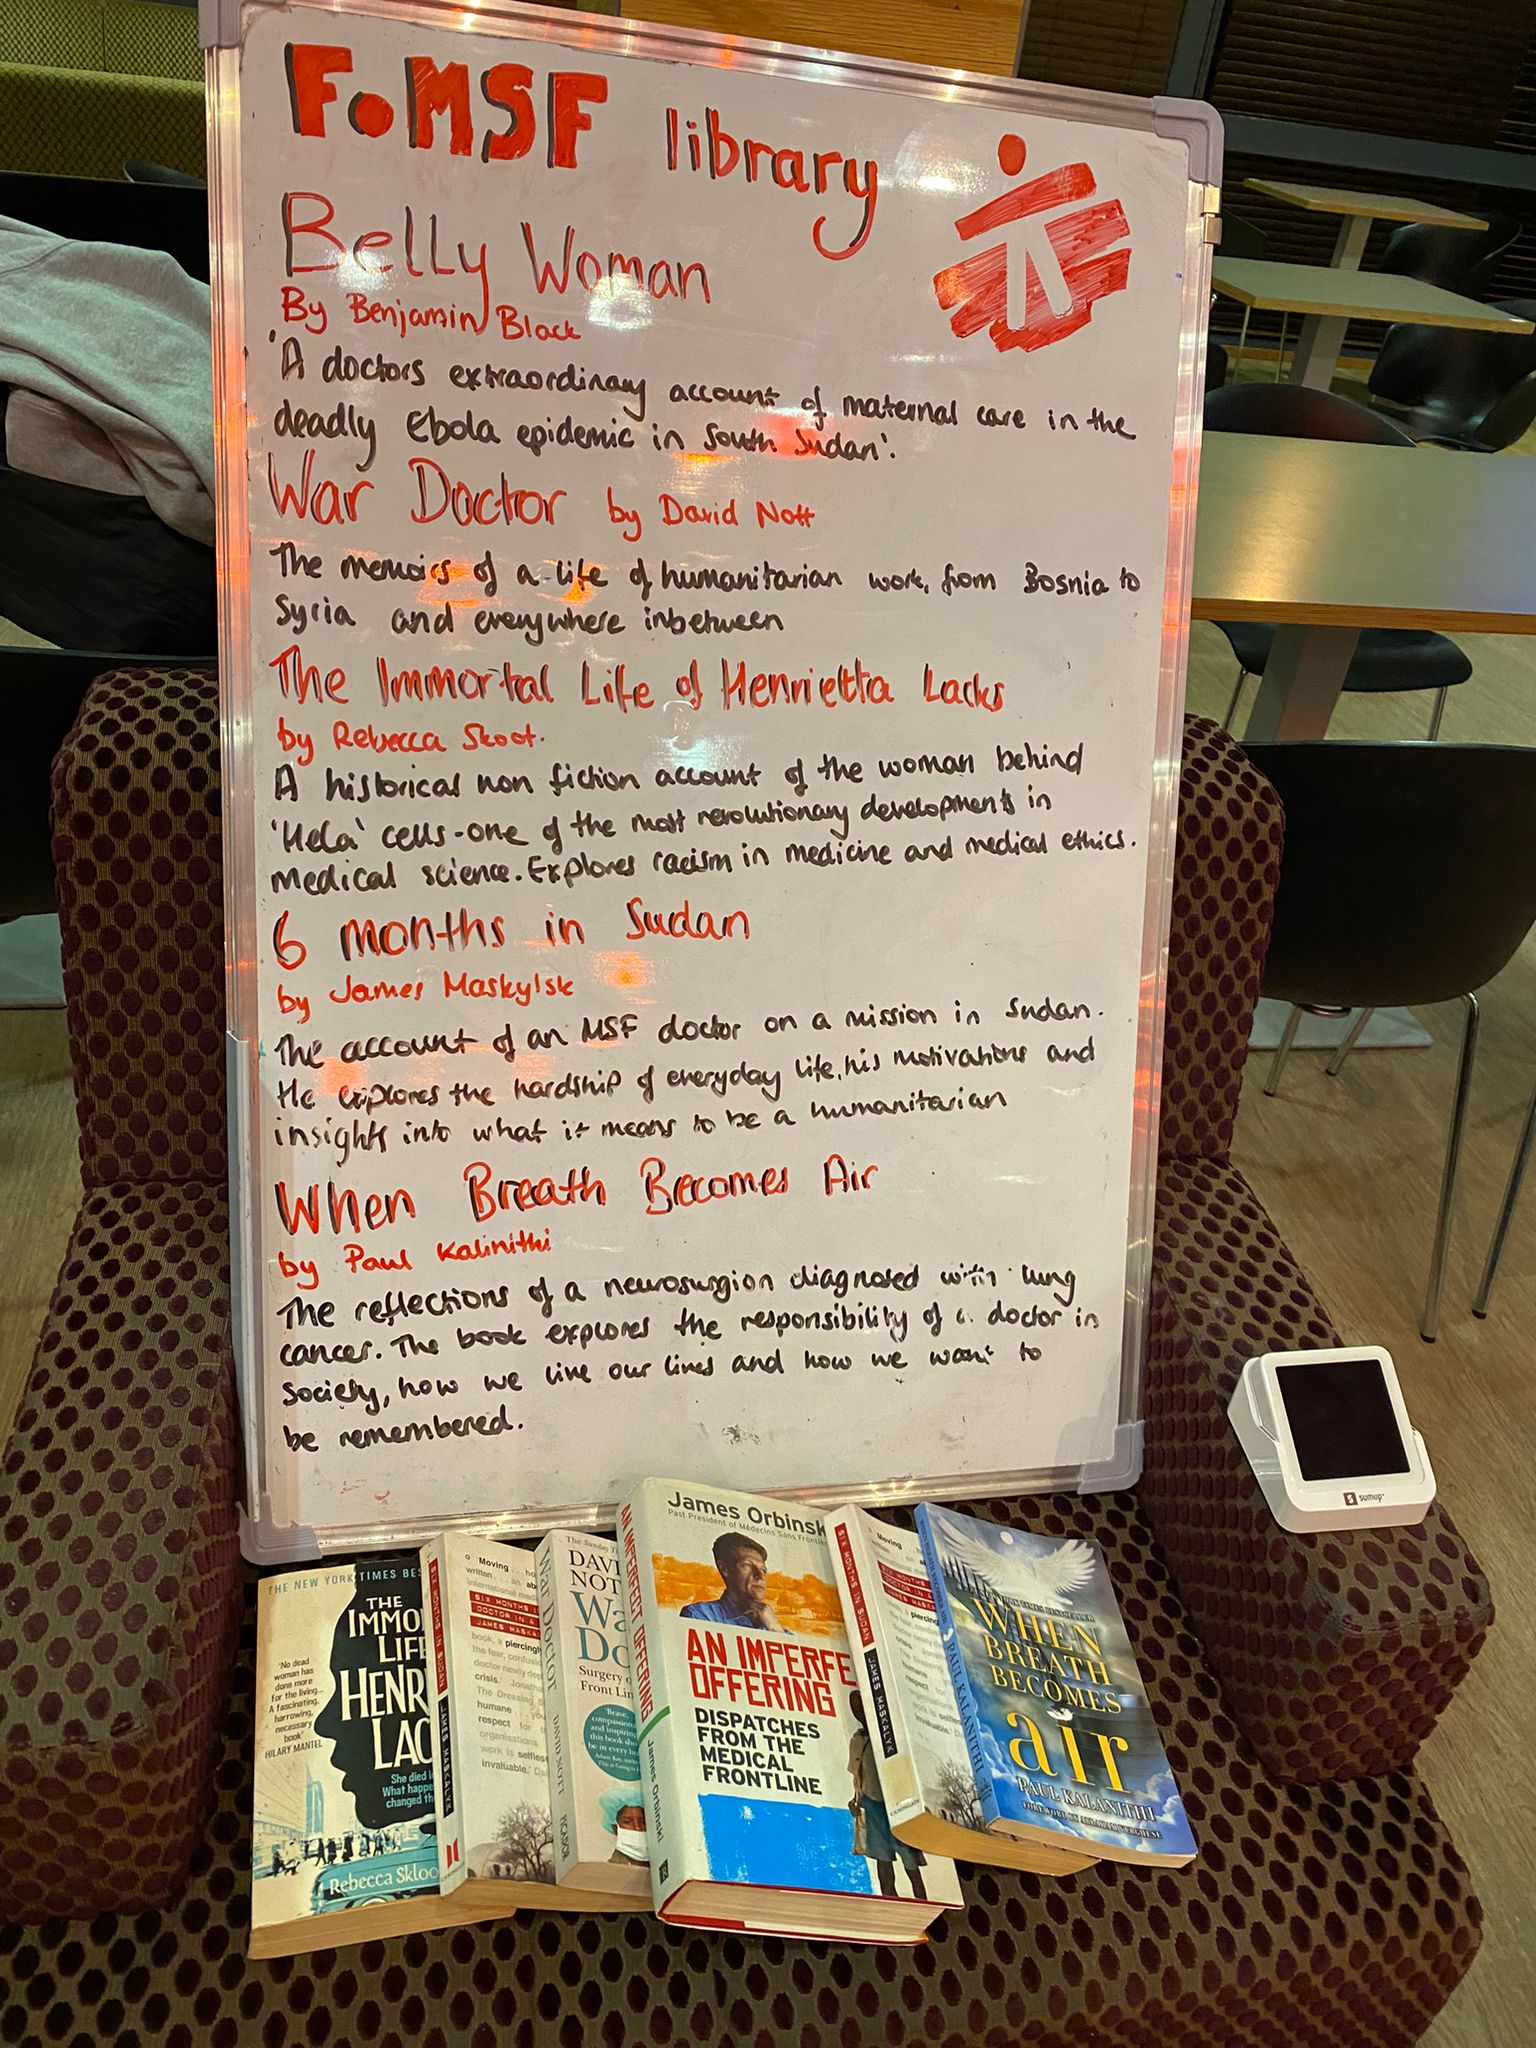 FoMSF library
Belly Woman
By Benjamin Black
'A doctors extraordinary account of maternal care in the
deadly Ebola epidemic in South Sudan'.
War Doctor by David Nott
The memoirs of a life of humanitarian work, from Bosnia to
Syria and everywhere inbetween
The Immortal Life of Henrietta Lacks
by Rebecca Skoot.
A historical non fiction account of the woman behind
'Hela' cells - one of the most revolutionary developments in
Medical science. Explores racism in medicine and medical ethics.
6 months in Sudan
by James Maskylsk
The account of an MSF doctor on a mission in Sudan.
He explores the hardship of everyday life, his motivations and
insights into what it means to be a humanitarian
When Breath Becomes Air
by Paul Kalinithi
The reflections of a neurosurgion diagnosed with lung
cancer. The book explores the responsibility of a doctor in
Society, how we live our lives and how we want to
be remembered.
sumup
THE NEW YORK TIMES BES
THE
IMMO
LIFE
HENR
LAC
'No dead
woman has
done more
for the living
A fascinating,
harrowing,
necessary
book'
HILARY MANTEL
She died
What happe
changed th
Rebecca Skloo
SIX MONTHS IN SUDAN
JAMES MASKALYK
Moving
written
international
SIX MONTHS I
DOCTOR IN A
JAMES MASKA
book, a piercing
crisis.
humane
respect for
organisations
work is selfless
invaluable.'
War Doctor DAVID NOTT PICADOR
The Sunday
DAVI
NOT
Wa
Do
Surgery
Front Lin
'Brave,
compassion
and inspiring
AN IMPERFECT OFFERING James Orbinski
James Orbinsk
Past President of Médecins Sans Frontie
AN IMPERFE
OFFERING
DISPATCHES
FROM THE
MEDICAL
FRONTLINE
SIX MONTHS IN SUDAN JAMES MASKALYK CANONGATE
Moving
written
SIX MONTHS
DOCTOR IN A
JAMES MASKA
crisis.
humane
respect
invaluable.'
WHEN BREATH BECOMES AIR PAUL KALANITHI
WHEN
BREATH
BECOMES
air
PAUL KALANITHI
FOREWORD BY ABRAHAM VERGHESE